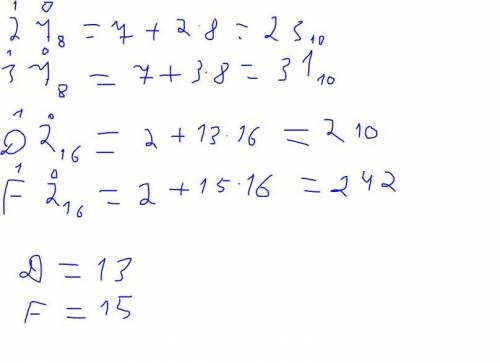 1 0
27₈ = 7 + 2·8 = 23₁₀
1 0
37₈ = 7 + 3·8 = 31₁₀
1 0
D2₁₆ = 2 + 13·16 = 210
1 0
F2₁₆ = 2 + 15·16 = 242
D = 13
F = 15